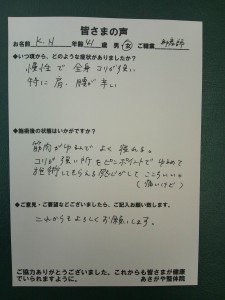 皆さまの声
お名前 K.H 年齢 41 歳 男・女 ご職業
◆いつ頃から、どのような症状がありましたか?
慢性で 全身 コリが強い
特に 肩、腰が辛い
◆施術後の状態はいかがですか?
筋肉がゆるんで よく 眠れる。
コリが 強い所を ピンポイントで ゆるめて
施術してもらえる 感じがして ここちいい。
(痛いけど)
◆ご意見・ご要望などございましたら、ご記入お願い致します。
これからも よろしく お願いします。
ご協力ありがとうございました。これからも皆さまが健康
でいられますように。 あさがや整体院